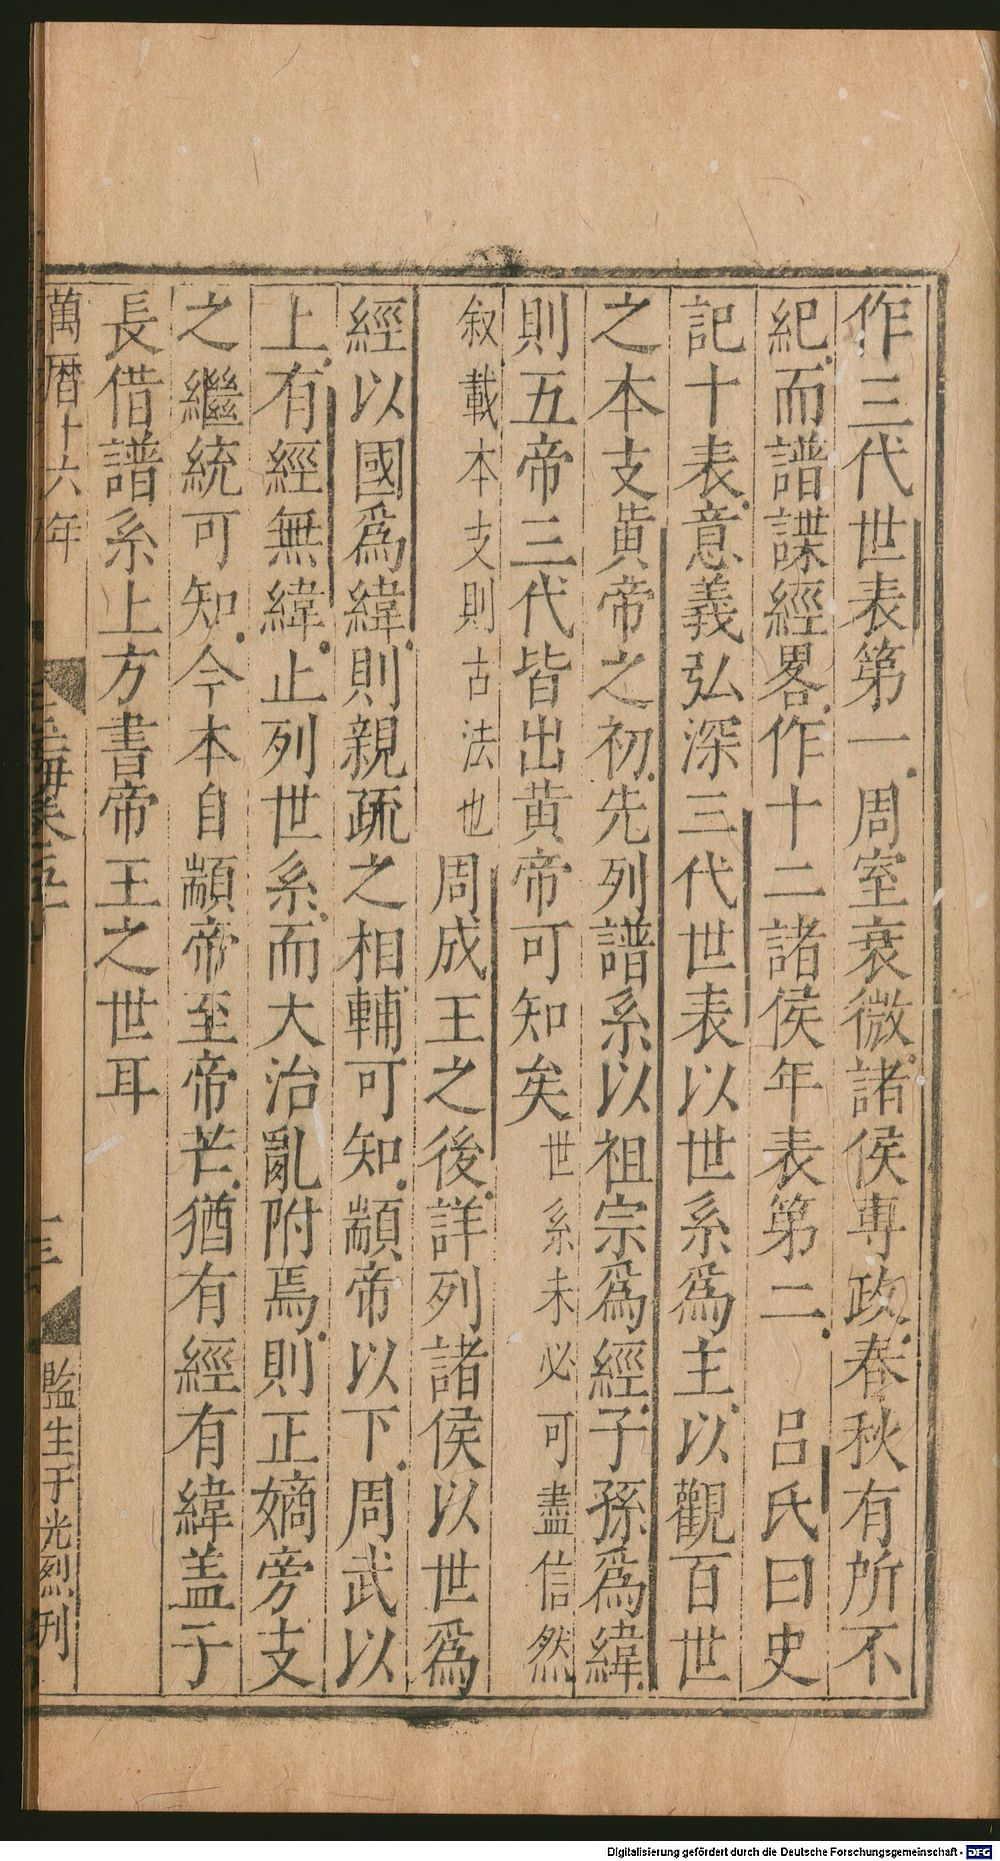 作三代世表第一周室衰微諸侯專政春秋有所不
紀而譜諜經畧作十二諸侯年表第二　呂氏曰史
記十表意義弘深三代世表以世系爲主以觀百世
之本支黄帝之初先列譜系以祖宗爲經子孫爲緯
則五帝三代皆出黄帝可知矣世系未必可盡信然
叙載本支則古法也周成王之後詳列諸侯以世爲
經以國爲緯則親疏之相輔可知顓帝以下周武以
上有經無緯止列世系而大治亂附焉則正嫡旁支
之繼統可知今本自顓帝至帝芒猶有經有緯盖于
長借譜系上方書帝王之世耳
萬曆十六年
玉海卷
十三
監生于光烈刊
Digitalisierung gefördert durch die Deutsche Forschungsgemeinschaft - DFG